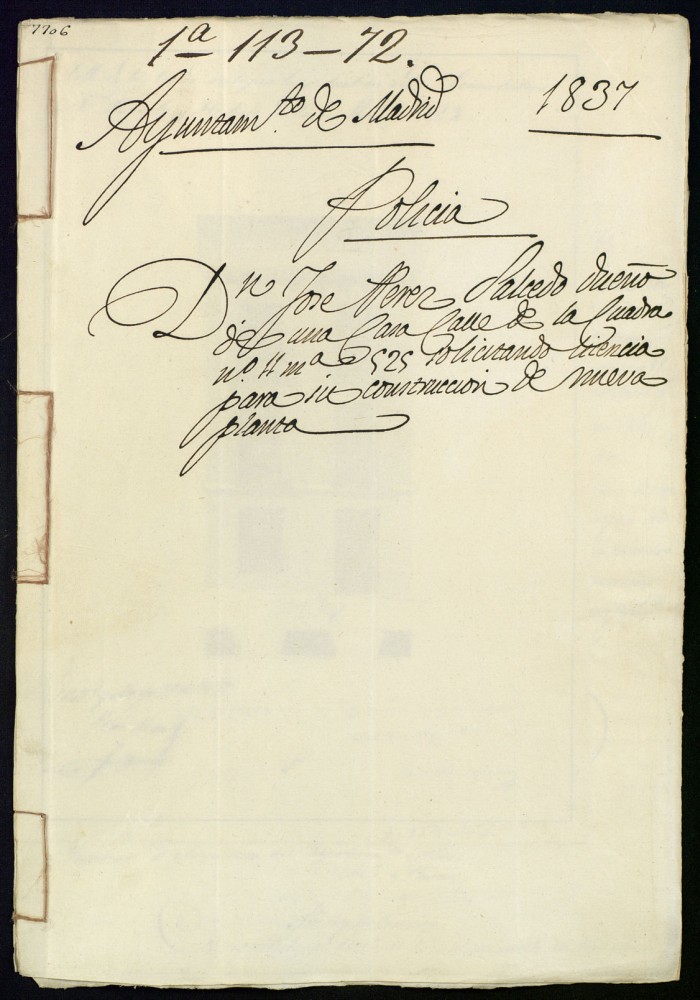 7706
1ª 113-72.
Ayuntamto de Madrid
1837
Policia
Dn Jose Perez Salcedo dueño
de una Casa Calle de la Cuadra
nº. 4 mª 525 solicitando licencia
para su construccion de nueva
planta